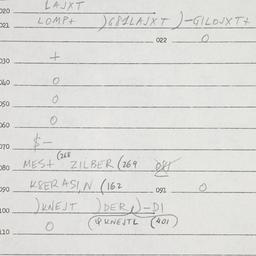 020 LAJXT
021 LOMP+ )681LAJXT )-GILOJXT+
022 0
030 +
040 0
050 0
060 0
070 $-
080 MES+ (268 ZILBER (269
090 KSERASI,N (162 091 0
100 )KNEJT )DER,)-DI
110 0 (φKNEJTL (401)